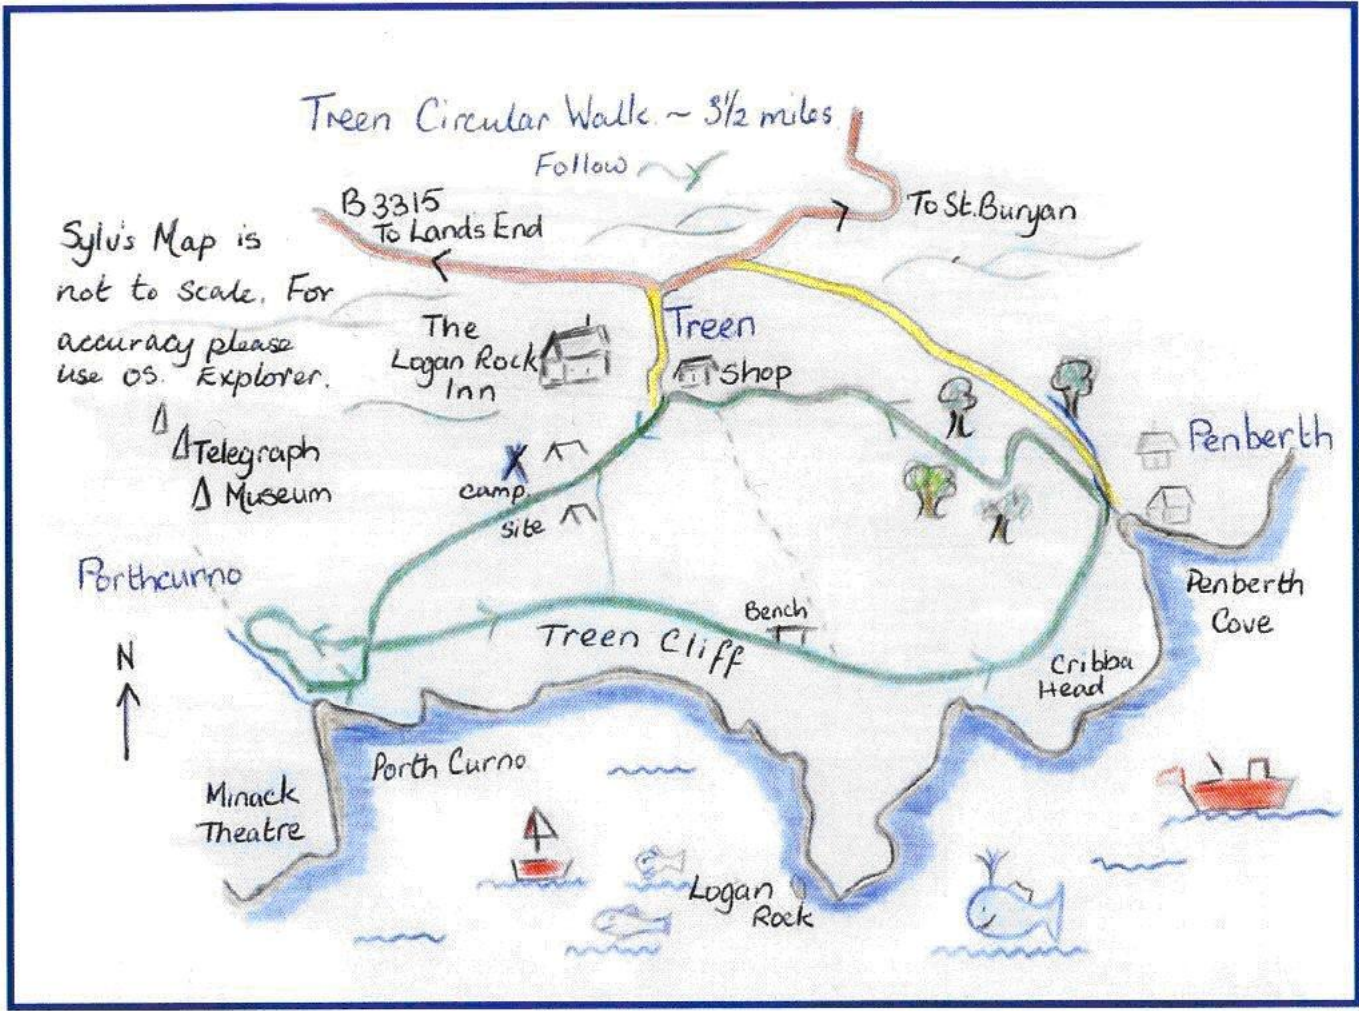 Treen Circular Walk ~ 3½ miles
Follow
B3315
To Lands End
To St. Buryan
Sylv's Map is
not to scale. For
accuracy please
use OS. Explorer.
The
Logan Rock
Inn
Treen
Shop
Telegraph
Museum
camp
site
Penberth
Porthcurno
Penberth
Cove
Bench
Treen Cliff
Cribba
Head
N
Porth Curno
Minack
Theatre
Logan
Rock